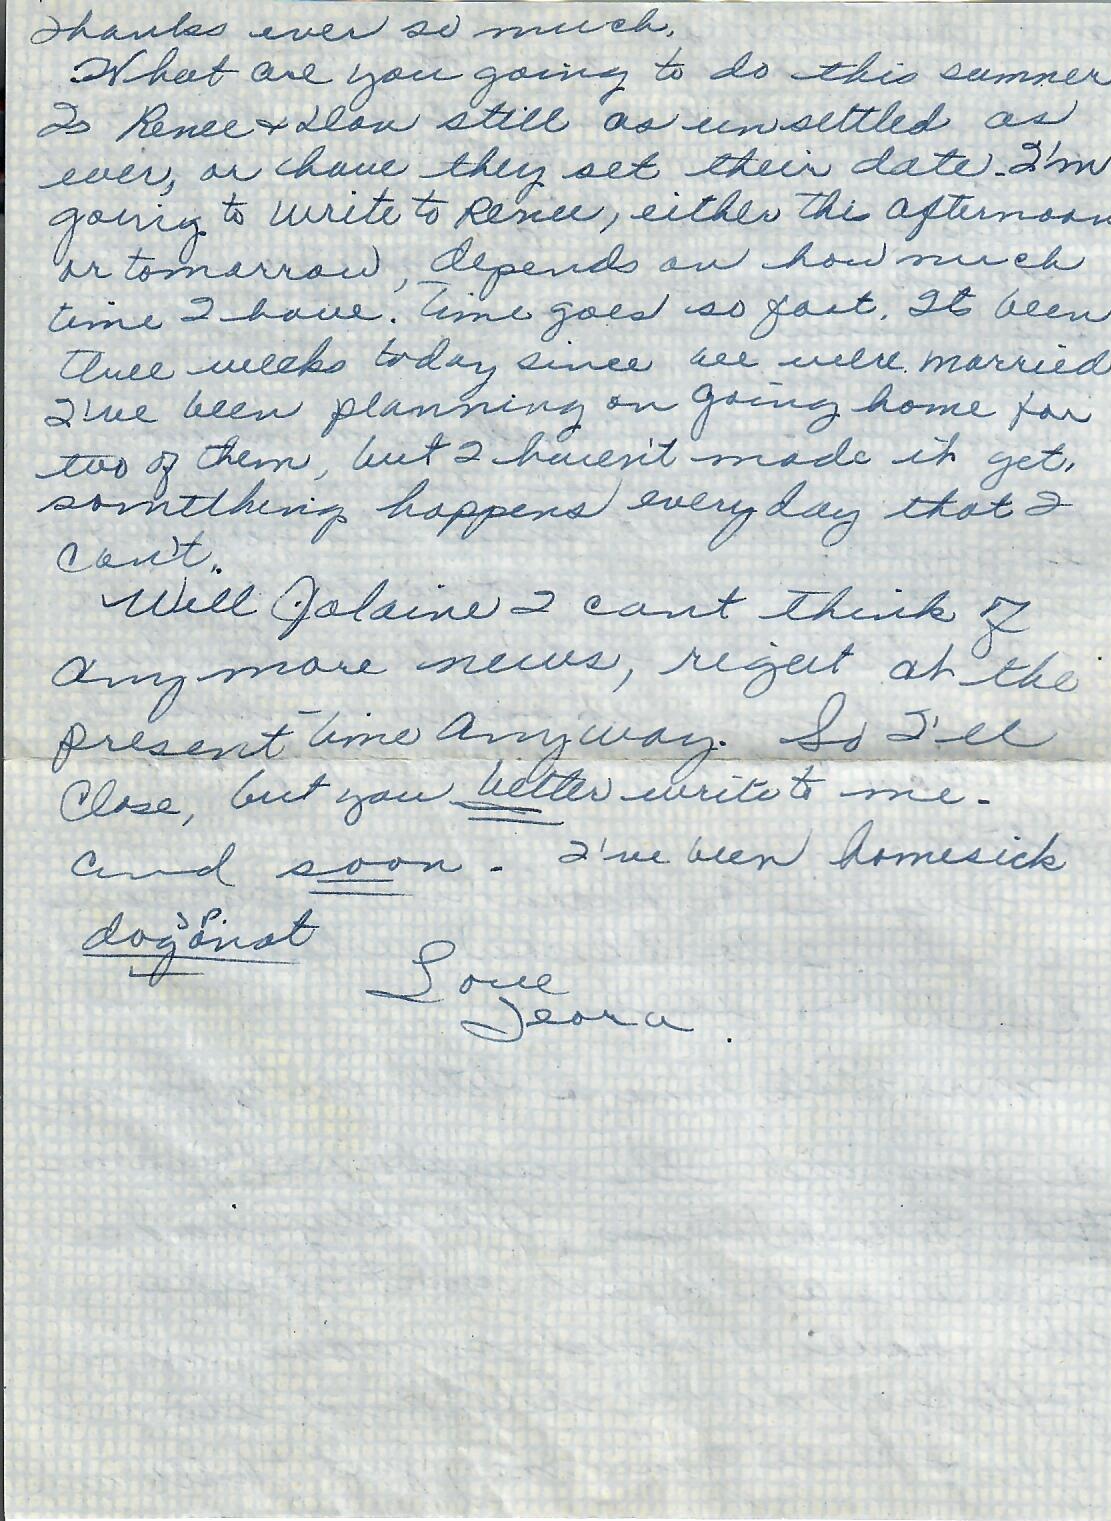 Thanks ever so much.
What are you going to do this summer
Is Renee & Don still as unsettled as
ever, or have they set their date. I'm
going to write to Renee, either this afternoon
or tomorrow, depends on how much
time I have. Time goes so fast. Its been
three weeks today since we were married
I've been planning on going home for
two of them, but I haven't made it yet,
something happens everyday that I
can't.
Well Jolaine I cant think of
anymore news, right at the
present time anyway. So I'll
Close, but you better write to me.
and soon. I've been homesick
Love